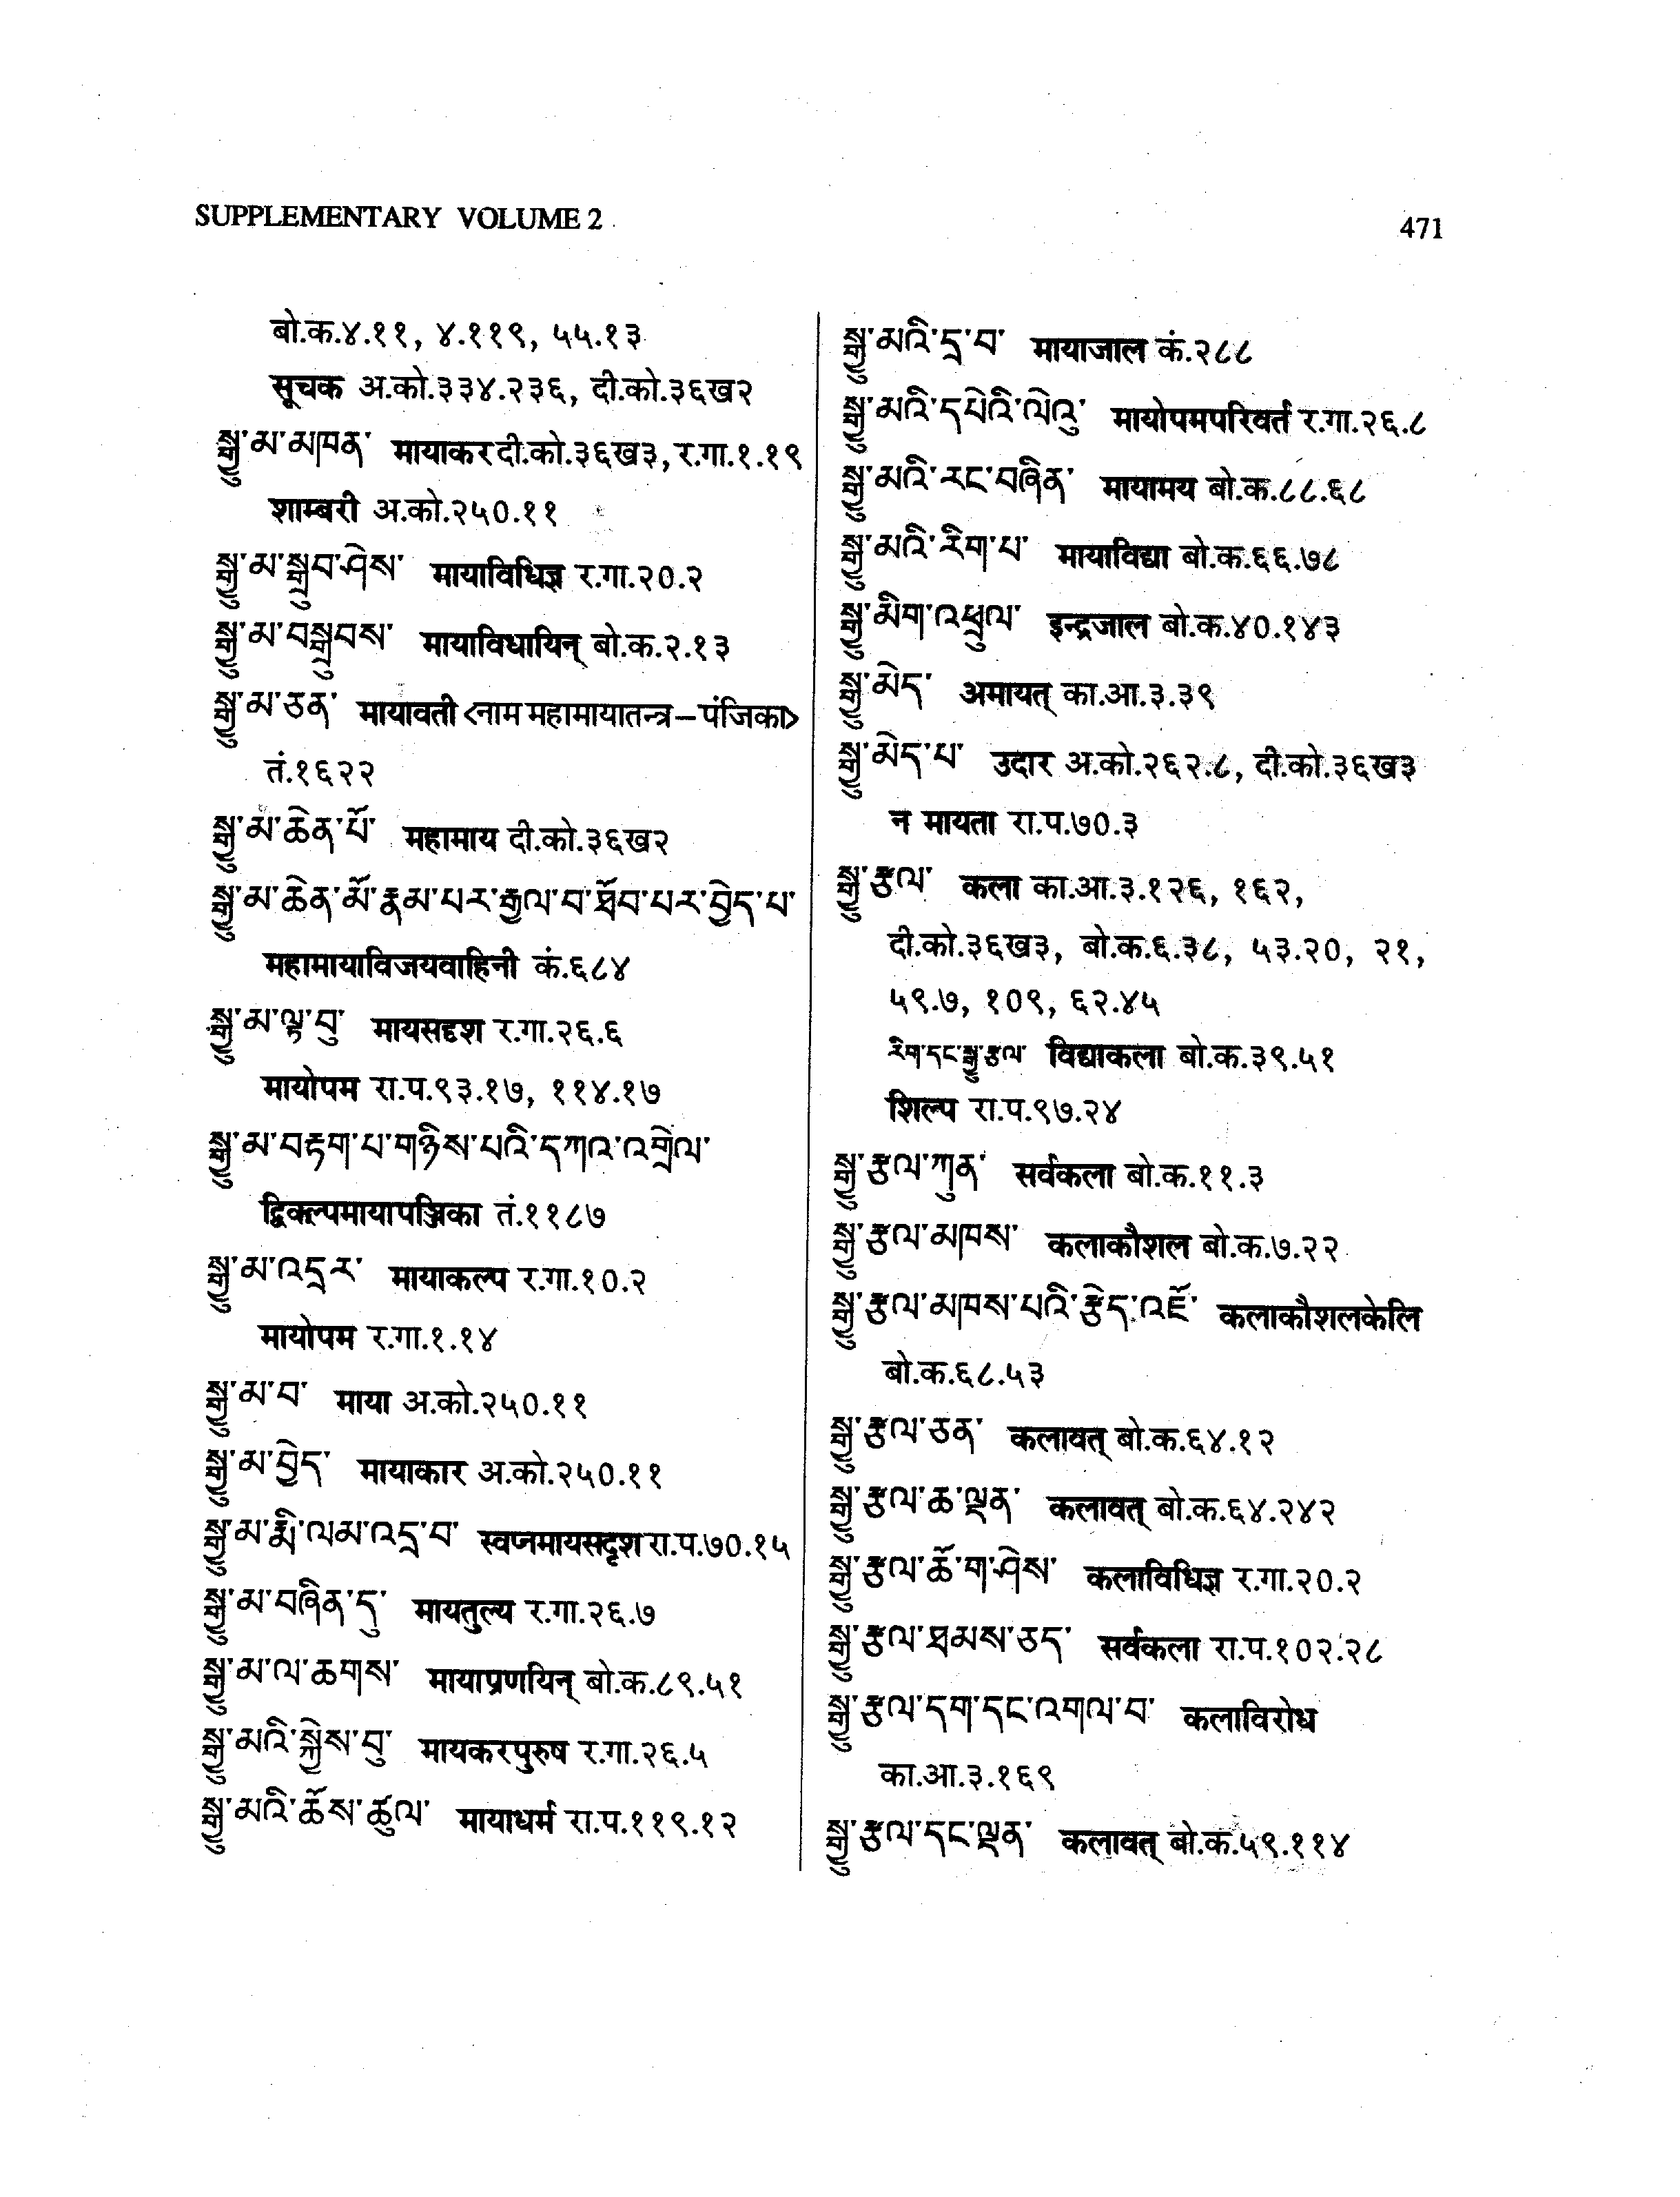 SUPPLEMENTARY VOLUME 2
471
बो.क.४.११, ४.११९, ५५.१३
सूचक अ.को.३३४.२३६, दी.को.३६ख२
སྒྱུ་མ་མཁན་ मायाकर दी.को.३६ख३, र.गा.१.१९
शाम्बरी अ.को.२५०.११
སྒྱུ་མ་སྒྲུབ་ཤེས་ मायाविधिज्ञ र.गा.२०.२
སྒྱུ་མ་བསྒྲུབས་ मायाविधायिन् बो.क.२.१३
སྒྱུ་མ་ཅན་ मायावती <नाम महामायातन्त्र–पंजिका>
तं.१६२२
སྒྱུ་མ་ཆེན་པོ་ महामाय दी.को.३६ख२
སྒྱུ་མ་ཆེན་མོ་རྣམ་པར་རྒྱལ་བ་ཐོབ་པར་བྱེད་པ་
महामायाविजयवाहिनी कं.६८४
སྒྱུ་མ་ལྟ་བུ་ मायसदृश र.गा.२६.६
मायोपम रा.प.९३.१७, ११४.१७
སྒྱུ་མ་བརྟག་པ་གཉིས་པའི་དཀའ་འགྲེལ་
द्विकल्पमायापञ्जिका तं.११८७
སྒྱུ་མ་འདྲར་ मायाकल्प र.गा.१०.२
मायोपम र.गा.१.१४
སྒྱུ་མ་བ་ माया अ.को.२५०.११
སྒྱུ་མ་བྱེད་ मायाकार अ.को.२५०.११
སྒྱུ་མ་རྨི་ལམ་འདྲ་བ་ स्वप्नमायसदृश रा.प.७०.१५
སྒྱུ་མ་བཞིན་དུ་ मायतुल्य र.गा.२६.७
སྒྱུ་མ་ལ་ཆགས་ मायाप्रणयिन् बो.क.८९.५१
སྒྱུ་མའི་སྐྱེས་བུ་ मायकरपुरुष र.गा.२६.५
སྒྱུ་མའི་ཆོས་ཚུལ་ मायाधर्म रा.प.११९.१२
སྒྱུ་མའི་དྲ་བ་ मायाजाल कं.२८८
སྒྱུ་མའི་དཔེའི་ལེའུ་ मायोपमपरिवर्त र.गा.२६.८
སྒྱུ་མའི་རང་བཞིན་ मायामय बो.क.८८.६८
སྒྱུ་མའི་རིག་པ་ मायाविद्या बो.क.६६.७८
སྒྱུ་མིག་འཕྲུལ་ इन्द्रजाल बो.क.४०.१४३
སྒྱུ་མེད་ अमायत् का.आ.३.३९
སྒྱུ་མེད་པ་ उदार अ.को.२६२.८, दी.को.३६ख३
न मायता रा.प.७०.३
སྒྱུ་རྩལ་ कला का.आ.३.१२६, १६२,
दी.को.३६ख३, बो.क.६.३८, ५३.२०, २१,
५९.७, १०९, ६२.४५
རིག་དང་སྒྱུ་རྩལ་ विद्याकला बो.क.३९.५१
शिल्प रा.प.९७.२४
སྒྱུ་རྩལ་ཀུན་ सर्वकला बो.क.११.३
སྒྱུ་རྩལ་མཁས་ कलाकौशल बो.क.७.२२
སྒྱུ་རྩལ་མཁས་པའི་རྩེད་འཇོ་ कलाकौशलकेलि
बो.क.६८.५३
སྒྱུ་རྩལ་ཅན་ कलावत् बो.क.६४.१२
སྒྱུ་རྩལ་ཆ་ལྡན་ कलावत् बो.क.६४.२४२
སྒྱུ་རྩལ་ཆོ་ག་ཤེས་ कलाविधिज्ञ र.गा.२०.२
སྒྱུ་རྩལ་ཐམས་ཅད་ सर्वकला रा.प.१०२.२८
སྒྱུ་རྩལ་དག་དང་འགལ་བ་ कलाविरोध
का.आ.३.१६९
སྒྱུ་རྩལ་དང་ལྡན་ कलावत् बो.क.५९.११४